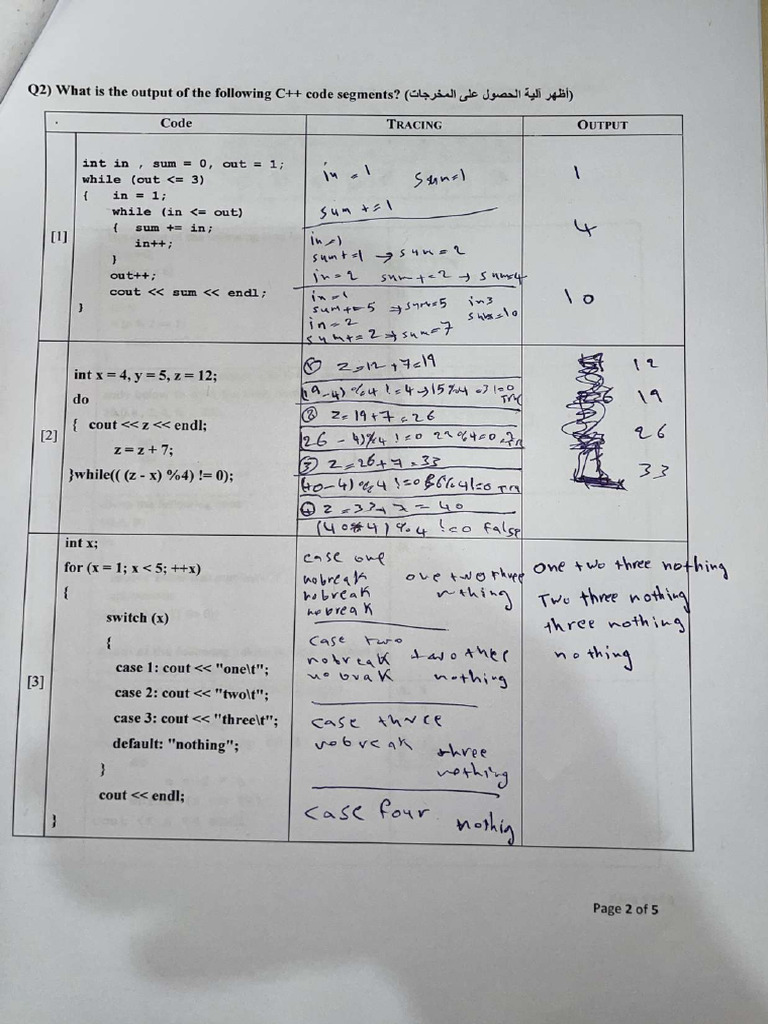 Q2) What is the output of the following C++ code segments? (أظهر آلية الحصول على المخرجات)
Code
TRACING
OUTPUT
[1]
int in , sum = 0, out = 1;
while (out <= 3)
{ in = 1;
while (in <= out)
{ sum += in;
in++;
}
out++;
cout << sum << endl;
}
in = 1 sum=1
sum += 1
in=1
sum+=1 → sum = 2
in = 2 sum += 2 → sum=4
in = 1
sum+=5 → sum=5 in3
in = 2 sum=10
sum+= 2 → sum=7
1
4
10
[2]
int x = 4, y = 5, z = 12;
do
{ cout << z << endl;
z = z + 7;
}while(( (z - x) %4) != 0);
① z=12+7=19
(19-4) %4 != 4 → 15%4 =3 !=0
② z= 19+7=26
26 - 4)%4 != 0 22%4=0
③ z=26+7=33
40-4) %4 !=0 36%4!=0
④ z=33+7= 40
(40 4) %4 !=0 False
12
19
26
33
[3]
int x;
for (x = 1; x < 5; ++x)
{
switch (x)
{
case 1: cout << "one\t";
case 2: cout << "two\t";
case 3: cout << "three\t";
default: "nothing";
}
cout << endl;
}
case one
nobreak one two three
nobreak nthing
nobreak
case two
nobreak two ther
no brak nothing
case three
nobreak three
nothing
case four nothig
One two three nothing
Two three nothing
three nothing
nothing
Page 2 of 5